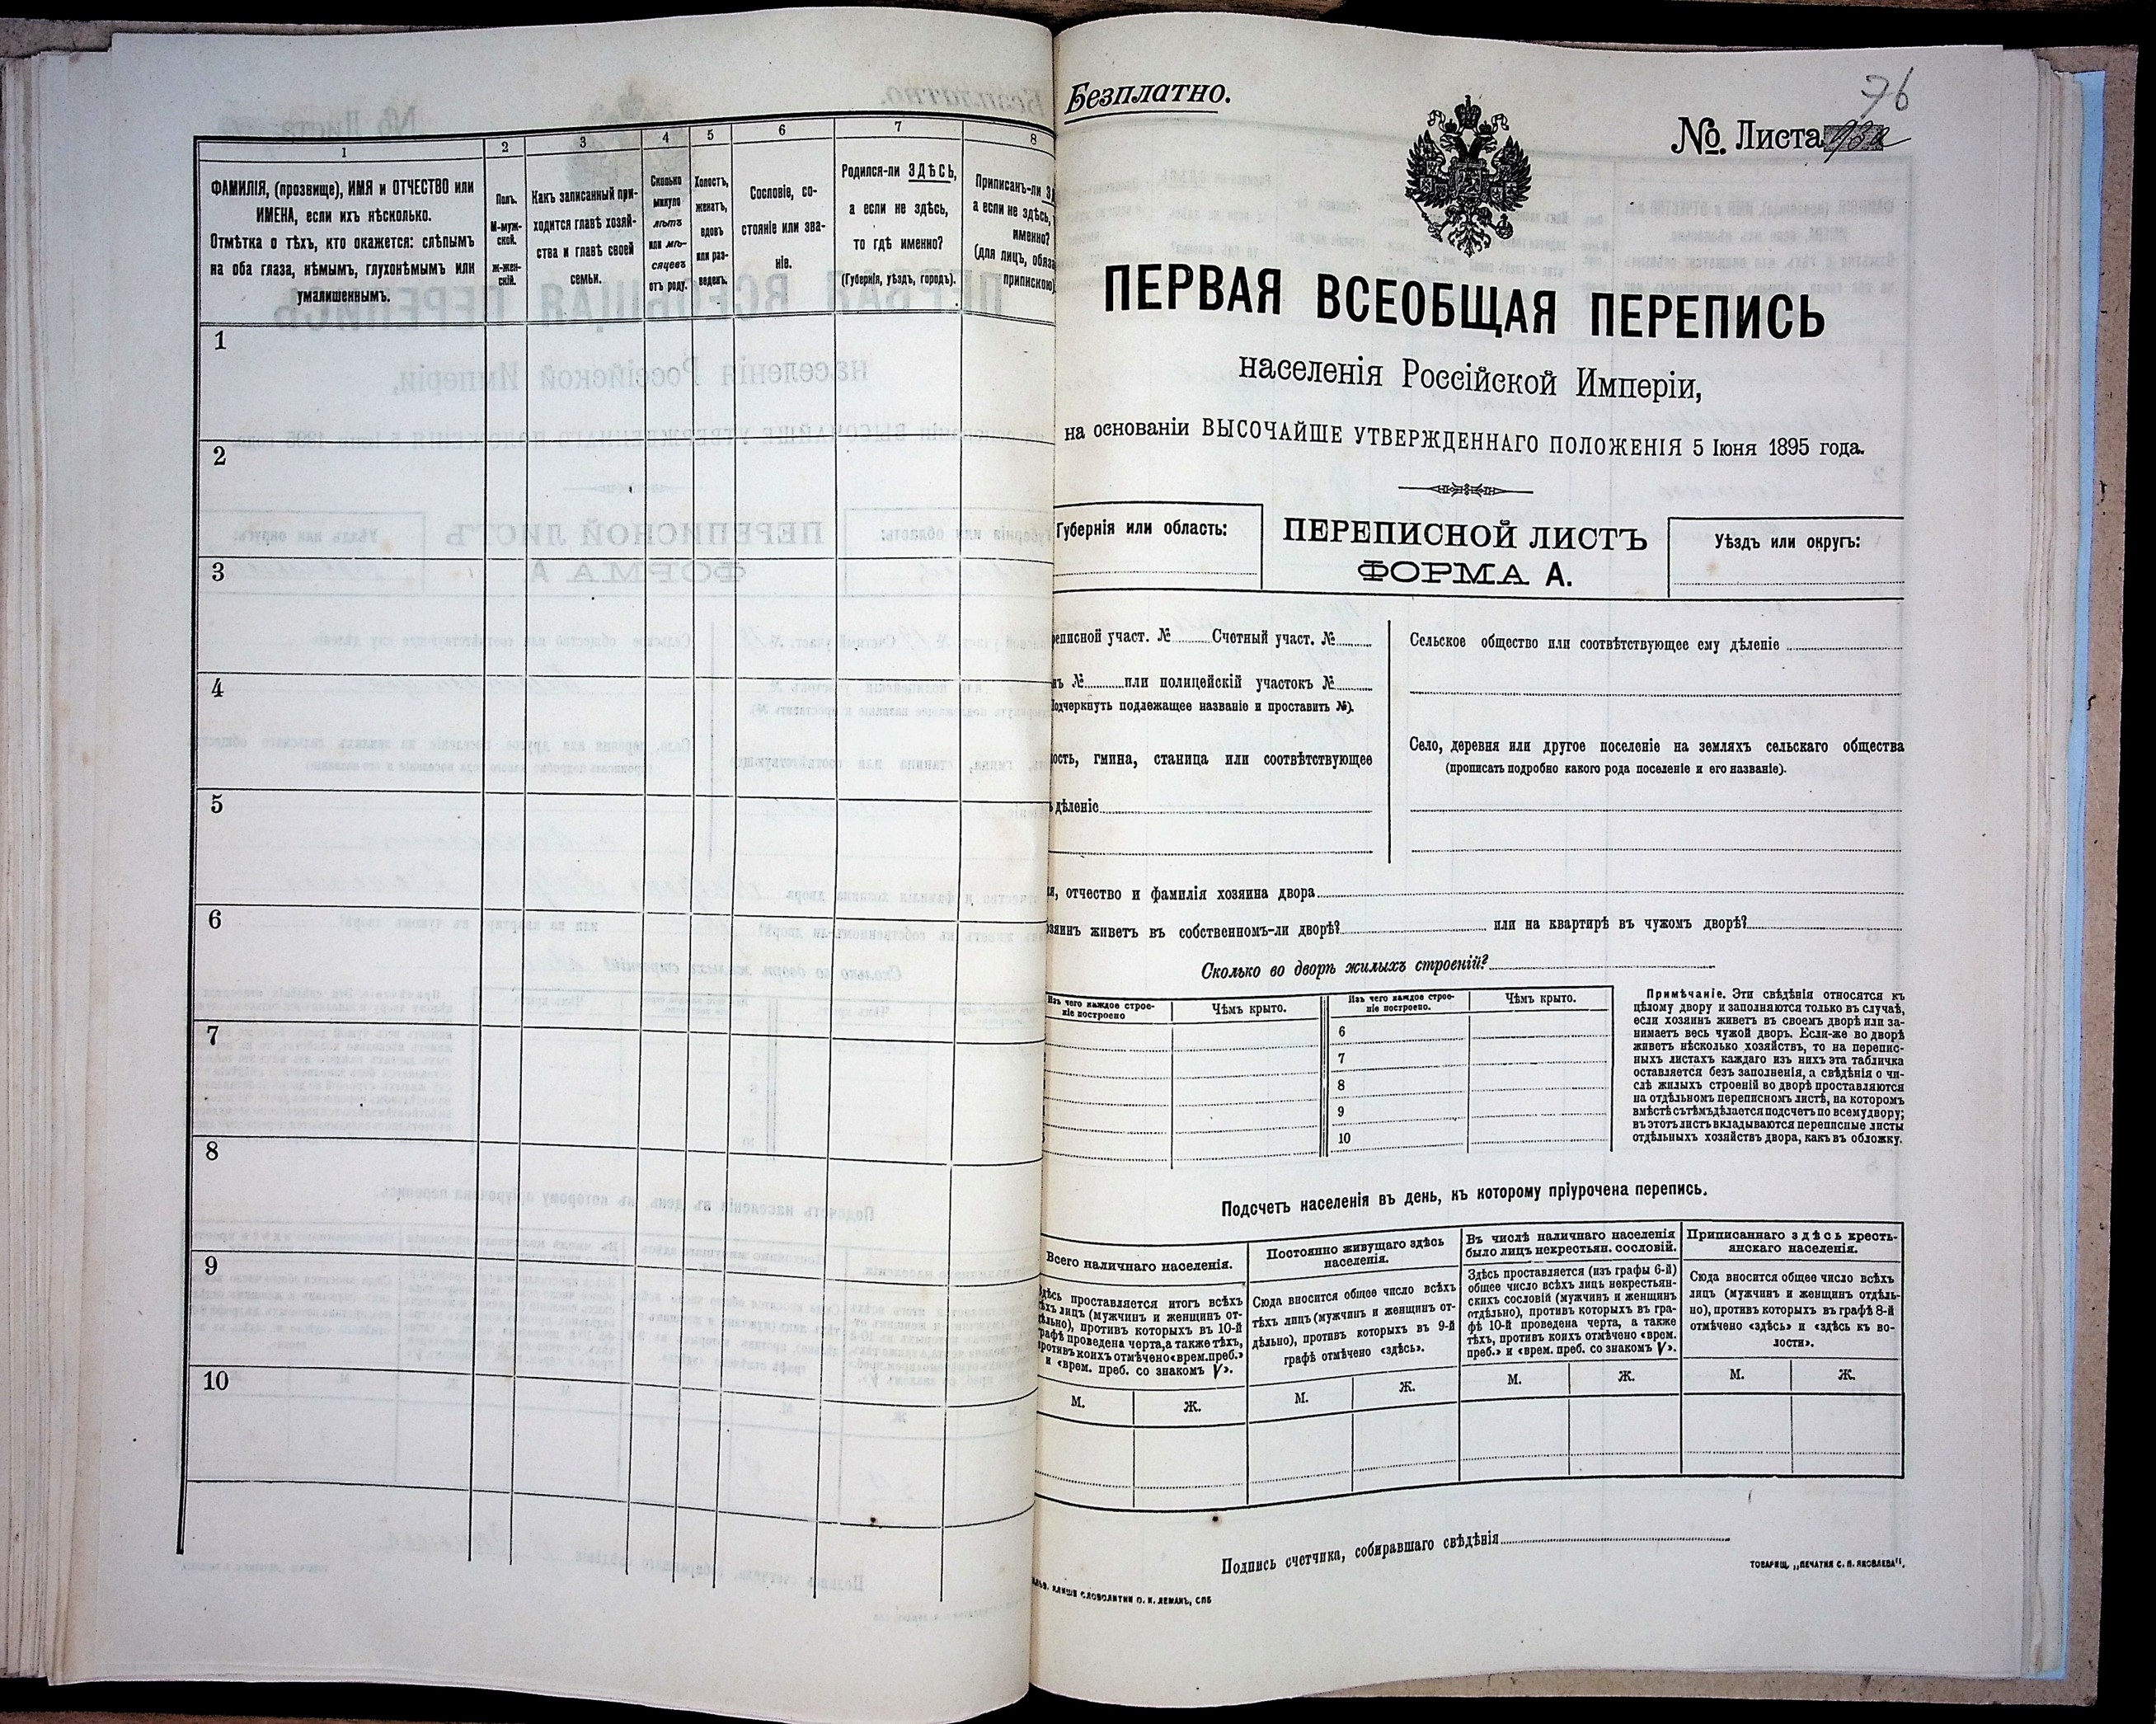 1
2
3
4
5
6
7
8
ФАМИЛІЯ, (прозвище), ИМЯ и ОТЧЕСТВО или
ИМЕНА, если ихъ нѣсколько.
Отмѣтка о тѣхъ, кто окажется: слѣпымъ
на оба глаза, нѣмымъ, глухонѣмымъ или
умалишеннымъ.
Полъ.
М-муж-
ской.
ж-жен-
скій.
Какъ записанный при-
ходится главѣ хозяй-
ства и главѣ своей
семьи.
Сколько
минуло
лѣтъ
или мѣ-
сяцевъ
отъ роду.
Холостъ,
женатъ,
вдовъ
или раз-
веденъ.
Сословіе, со-
стояніе или зва-
ніе.
Родился-ли ЗДѢСЬ,
а если не здѣсь,
то гдѣ именно?
(Губернія, уѣздъ, городъ).
Приписанъ-ли
а если не здѣсь,
именно?
(для лицъ,
припискою)
1
2
3
4
5
6
7
8
9
10
Безплатно.
76
№. Листа
ПЕРВАЯ ВСЕОБЩАЯ ПЕРЕПИСЬ
населенія Россійской Имперіи,
на основаніи ВЫСОЧАЙШЕ УТВЕРЖДЕННАГО ПОЛОЖЕНІЯ 5 Іюня 1895 года.
Губернія или область:
ПЕРЕПИСНОЙ ЛИСТЪ
ФОРМА А.
Уѣздъ или округъ:
реписной участ. № Счетный участ. №
ъ № или полицейскій участокъ №
одчеркнуть подлежащее названіе и проставить №).
ость, гмина, станица или соотвѣтствующее
дѣленіе
Сельское общество или соотвѣтствующее ему дѣленіе
Село, деревня или другое поселеніе на земляхъ сельскаго общества
(прописать подробно какого рода поселеніе и его названіе).
я, отчество и фамилія хозяина двора
озяинъ живетъ въ собственномъ-ли дворѣ? или на квартирѣ въ чужомъ дворѣ?
Сколько во дворѣ жилыхъ строеній?
Изъ чего каждое строе-
ніе построено
Чѣмъ крыто.
Изъ чего каждое строе-
ніе построено.
Чѣмъ крыто.
6
7
8
9
10
Примѣчаніе. Эти свѣдѣнія относятся къ
цѣлому двору и заполняются только въ случаѣ,
если хозяинъ живетъ въ своемъ дворѣ или за-
нимаетъ весь чужой дворъ. Если-же во дворѣ
живетъ нѣсколько хозяйствъ, то на перепис-
ныхъ листахъ каждаго изъ нихъ эта табличка
оставляется безъ заполненія, а свѣдѣнія о чи-
слѣ жилыхъ строеній во дворѣ проставляются
на отдѣльномъ переписномъ листѣ, на которомъ
вмѣстѣ съ тѣмъ дѣлается подсчетъ по всему двору;
въ этотъ листъ вкладываются переписные листы
отдѣльныхъ хозяйствъ двора, какъ въ обложку.
Подсчетъ населенія въ день, къ которому пріурочена перепись.
Всего наличнаго населенія.
Здѣсь проставляется итогъ всѣхъ
тѣхъ лицъ (мужчинъ и женщинъ от-
дѣльно), противъ которыхъ въ 10-й
графѣ проведена черта, а также тѣхъ,
противъ коихъ отмѣчено «врем. преб.»
и «врем. преб. со знакомъ V».
М.
Ж.
Постоянно живущаго здѣсь
населенія.
Сюда вносится общее число всѣхъ
тѣхъ лицъ (мужчинъ и женщинъ от-
дѣльно), противъ которыхъ въ 9-й
графѣ отмѣчено «здѣсь».
М.
Ж.
Въ числѣ наличнаго населенія
было лицъ некрестьян. сословій.
Здѣсь проставляется (изъ графы 6-й)
общее число всѣхъ лицъ некрестьян-
скихъ сословій (мужчинъ и женщинъ
отдѣльно), противъ которыхъ въ гра-
фѣ 10-й проведена черта, а также
тѣхъ, противъ коихъ отмѣчено «врем.
преб.» и «врем. преб. со знакомъ V».
М.
Ж.
Приписаннаго здѣсь кресть-
янскаго населенія.
Сюда вносится общее число всѣхъ
лицъ (мужчинъ и женщинъ отдѣль-
но), противъ которыхъ въ графѣ 8-й
отмѣчено «здѣсь» и «здѣсь къ во-
лости».
М.
Ж.
Подпись счетчика, собиравшаго свѣдѣнія
ТОВАРИЩ. „ПЕЧАТНЯ С. П. ЯКОВЛЕВА“.
КЛИШЕ СЛОВОЛИТНИ О. И. ЛЕМАНЪ, СПБ